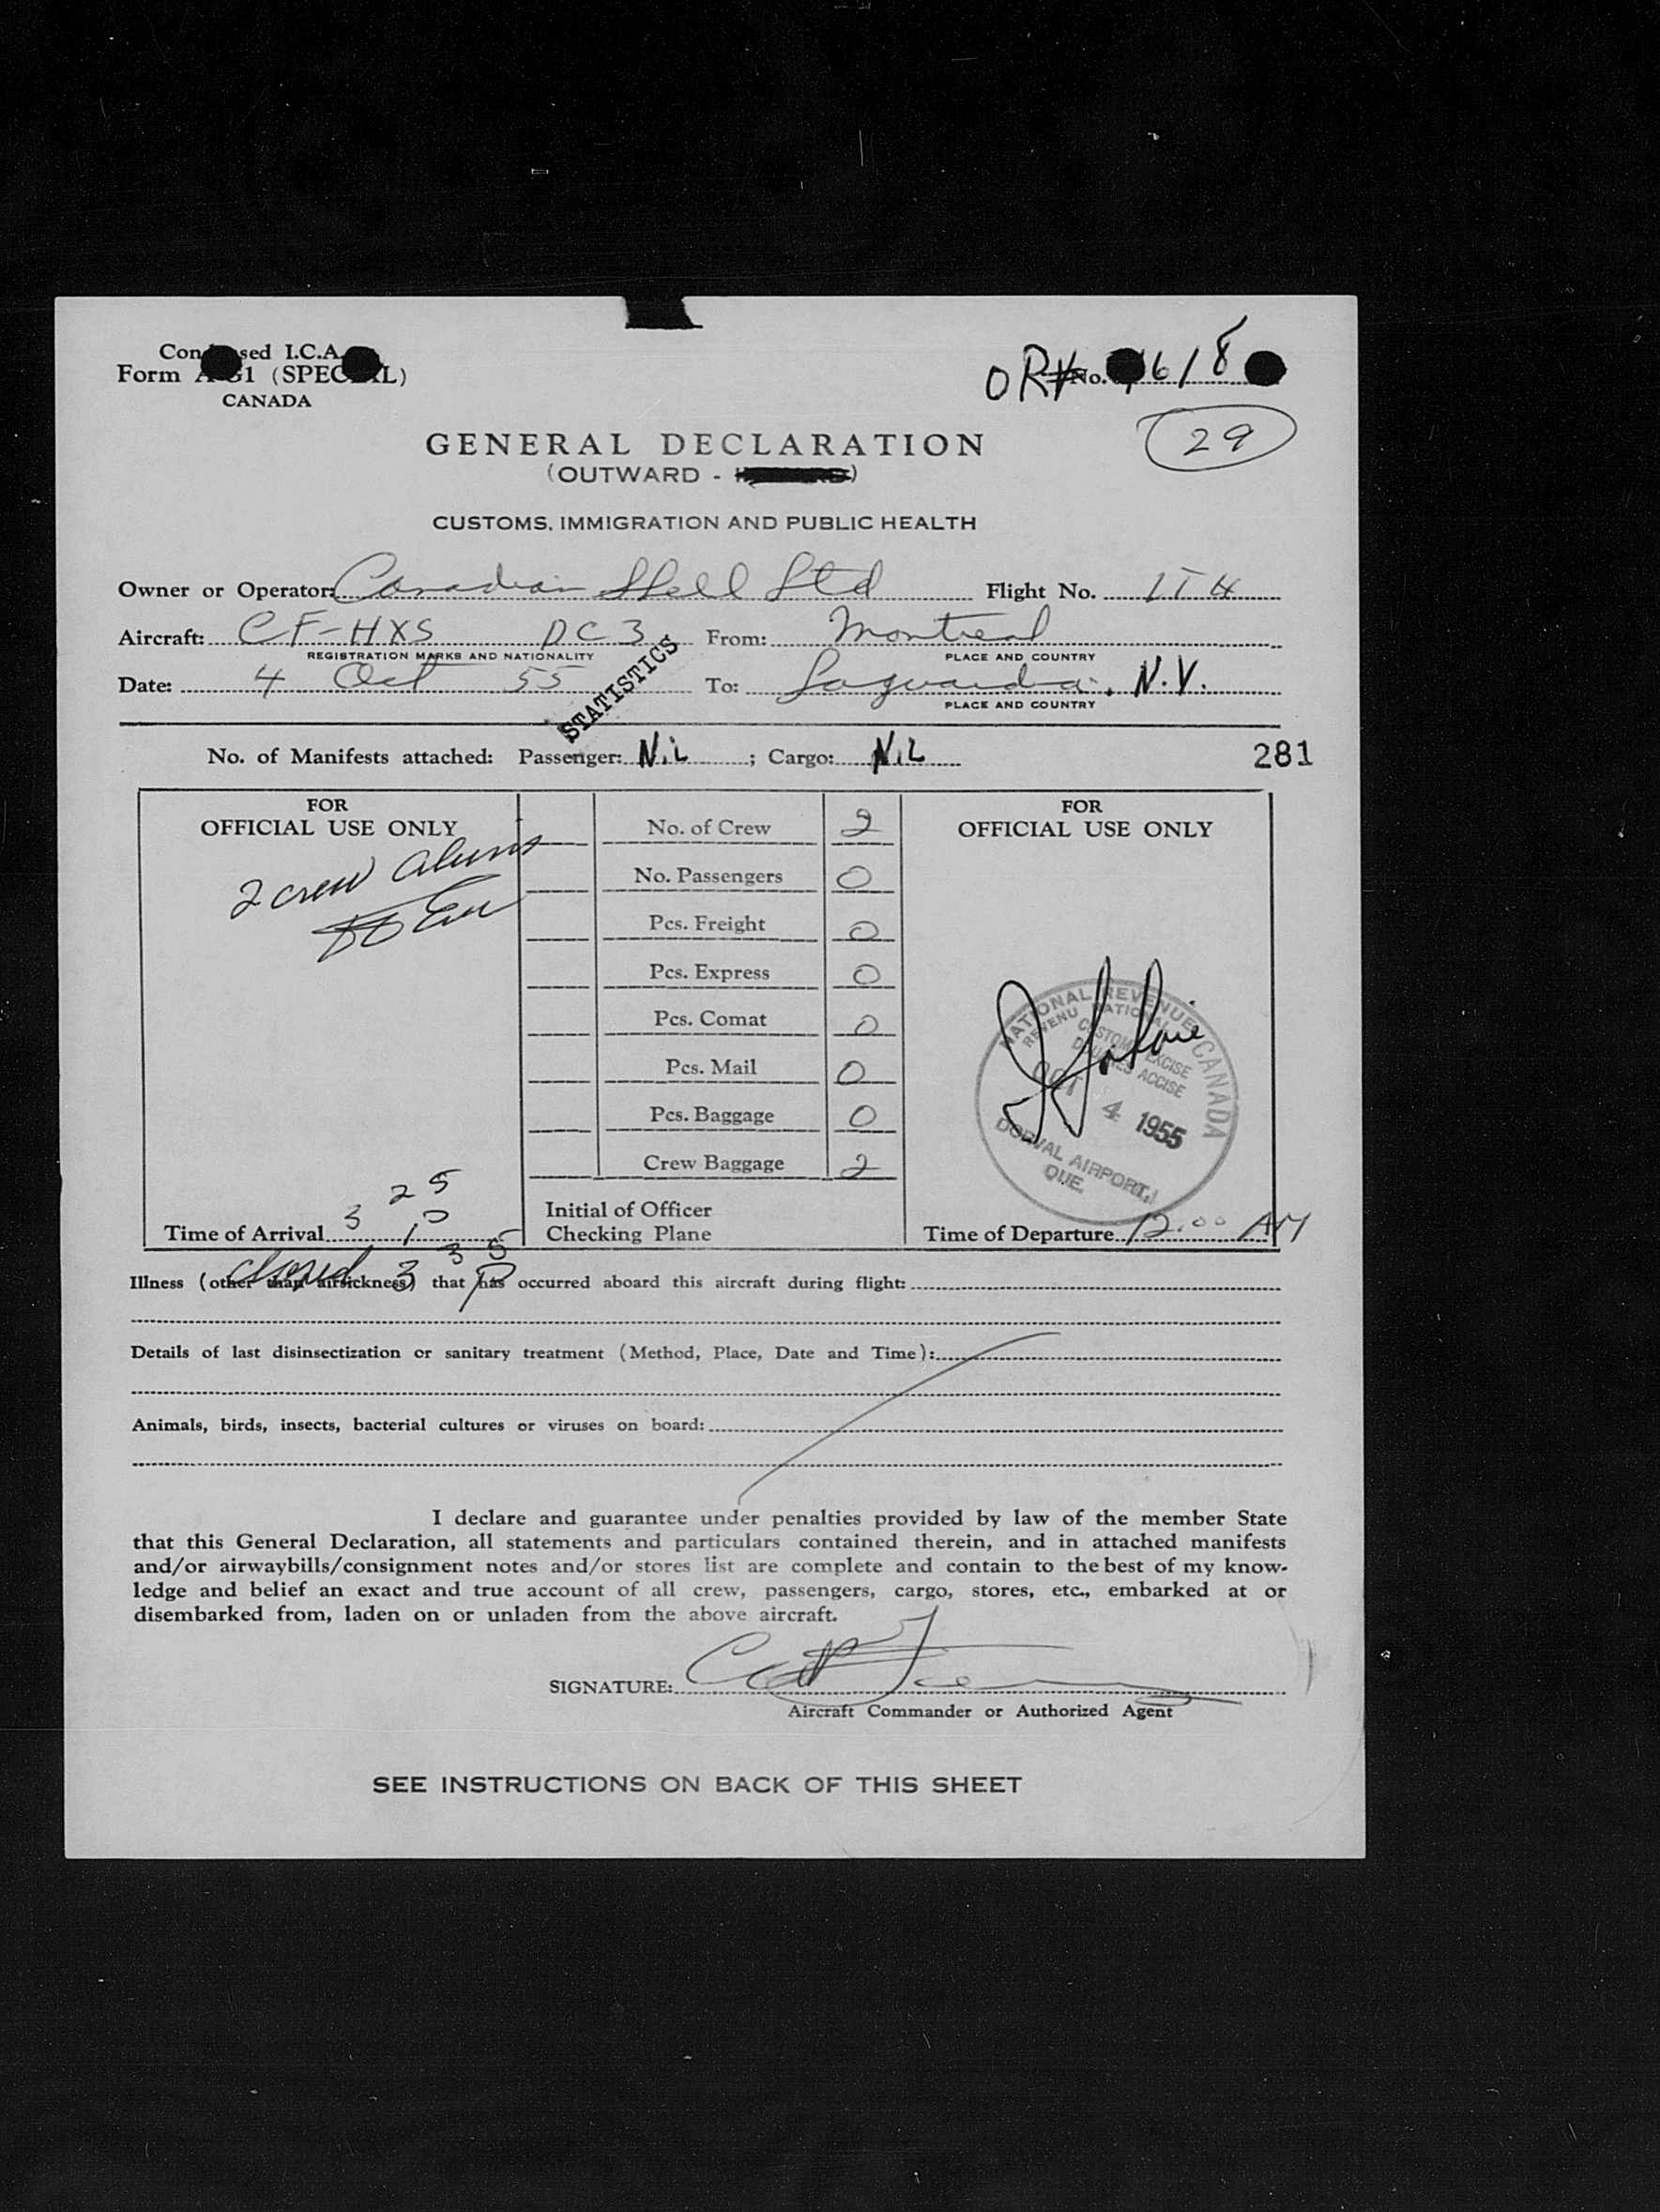 Con sed I.C.A.
Form A G1 (SPEC AL)
CANADA
OR# No. 618
29
GENERAL DECLARATION
(OUTWARD - )
CUSTOMS, IMMIGRATION AND PUBLIC HEALTH
Owner or Operator: Canadian Shell Ltd Flight No. IT 4
Aircraft: CF-HXS DC3 From: Montreal
REGISTRATION MARKS AND NATIONALITY PLACE AND COUNTRY
Date: 4 Oct 55 To: Laguardia, N.Y.
PLACE AND COUNTRY
STATISTICS
No. of Manifests attached: Passenger: NiL ; Cargo: NiL 281
FOR
OFFICIAL USE ONLY
2 crew aliens
Time of Arrival 3 25 P
closed 3 35 P
No. of Crew 2
No. Passengers 0
Pcs. Freight 0
Pcs. Express 0
Pcs. Comat 0
Pcs. Mail 0
Pcs. Baggage 0
Crew Baggage 2
Initial of Officer
Checking Plane
FOR
OFFICIAL USE ONLY
NATIONAL REVENUE CANADA
REVENU NATIONAL
CUSTOMS EXCISE
DOUANES ACCISE
OCT 4 1955
DORVAL AIRPORT,
QUE.
Time of Departure 12.00 AM
Illness (other than airsickness) that has occurred aboard this aircraft during flight:
Details of last disinsectization or sanitary treatment (Method, Place, Date and Time):
Animals, birds, insects, bacterial cultures or viruses on board:
I declare and guarantee under penalties provided by law of the member State
that this General Declaration, all statements and particulars contained therein, and in attached manifests
and/or airwaybills/consignment notes and/or stores list are complete and contain to the best of my know-
ledge and belief an exact and true account of all crew, passengers, cargo, stores, etc., embarked at or
disembarked from, laden on or unladen from the above aircraft.
SIGNATURE:
Aircraft Commander or Authorized Agent
SEE INSTRUCTIONS ON BACK OF THIS SHEET